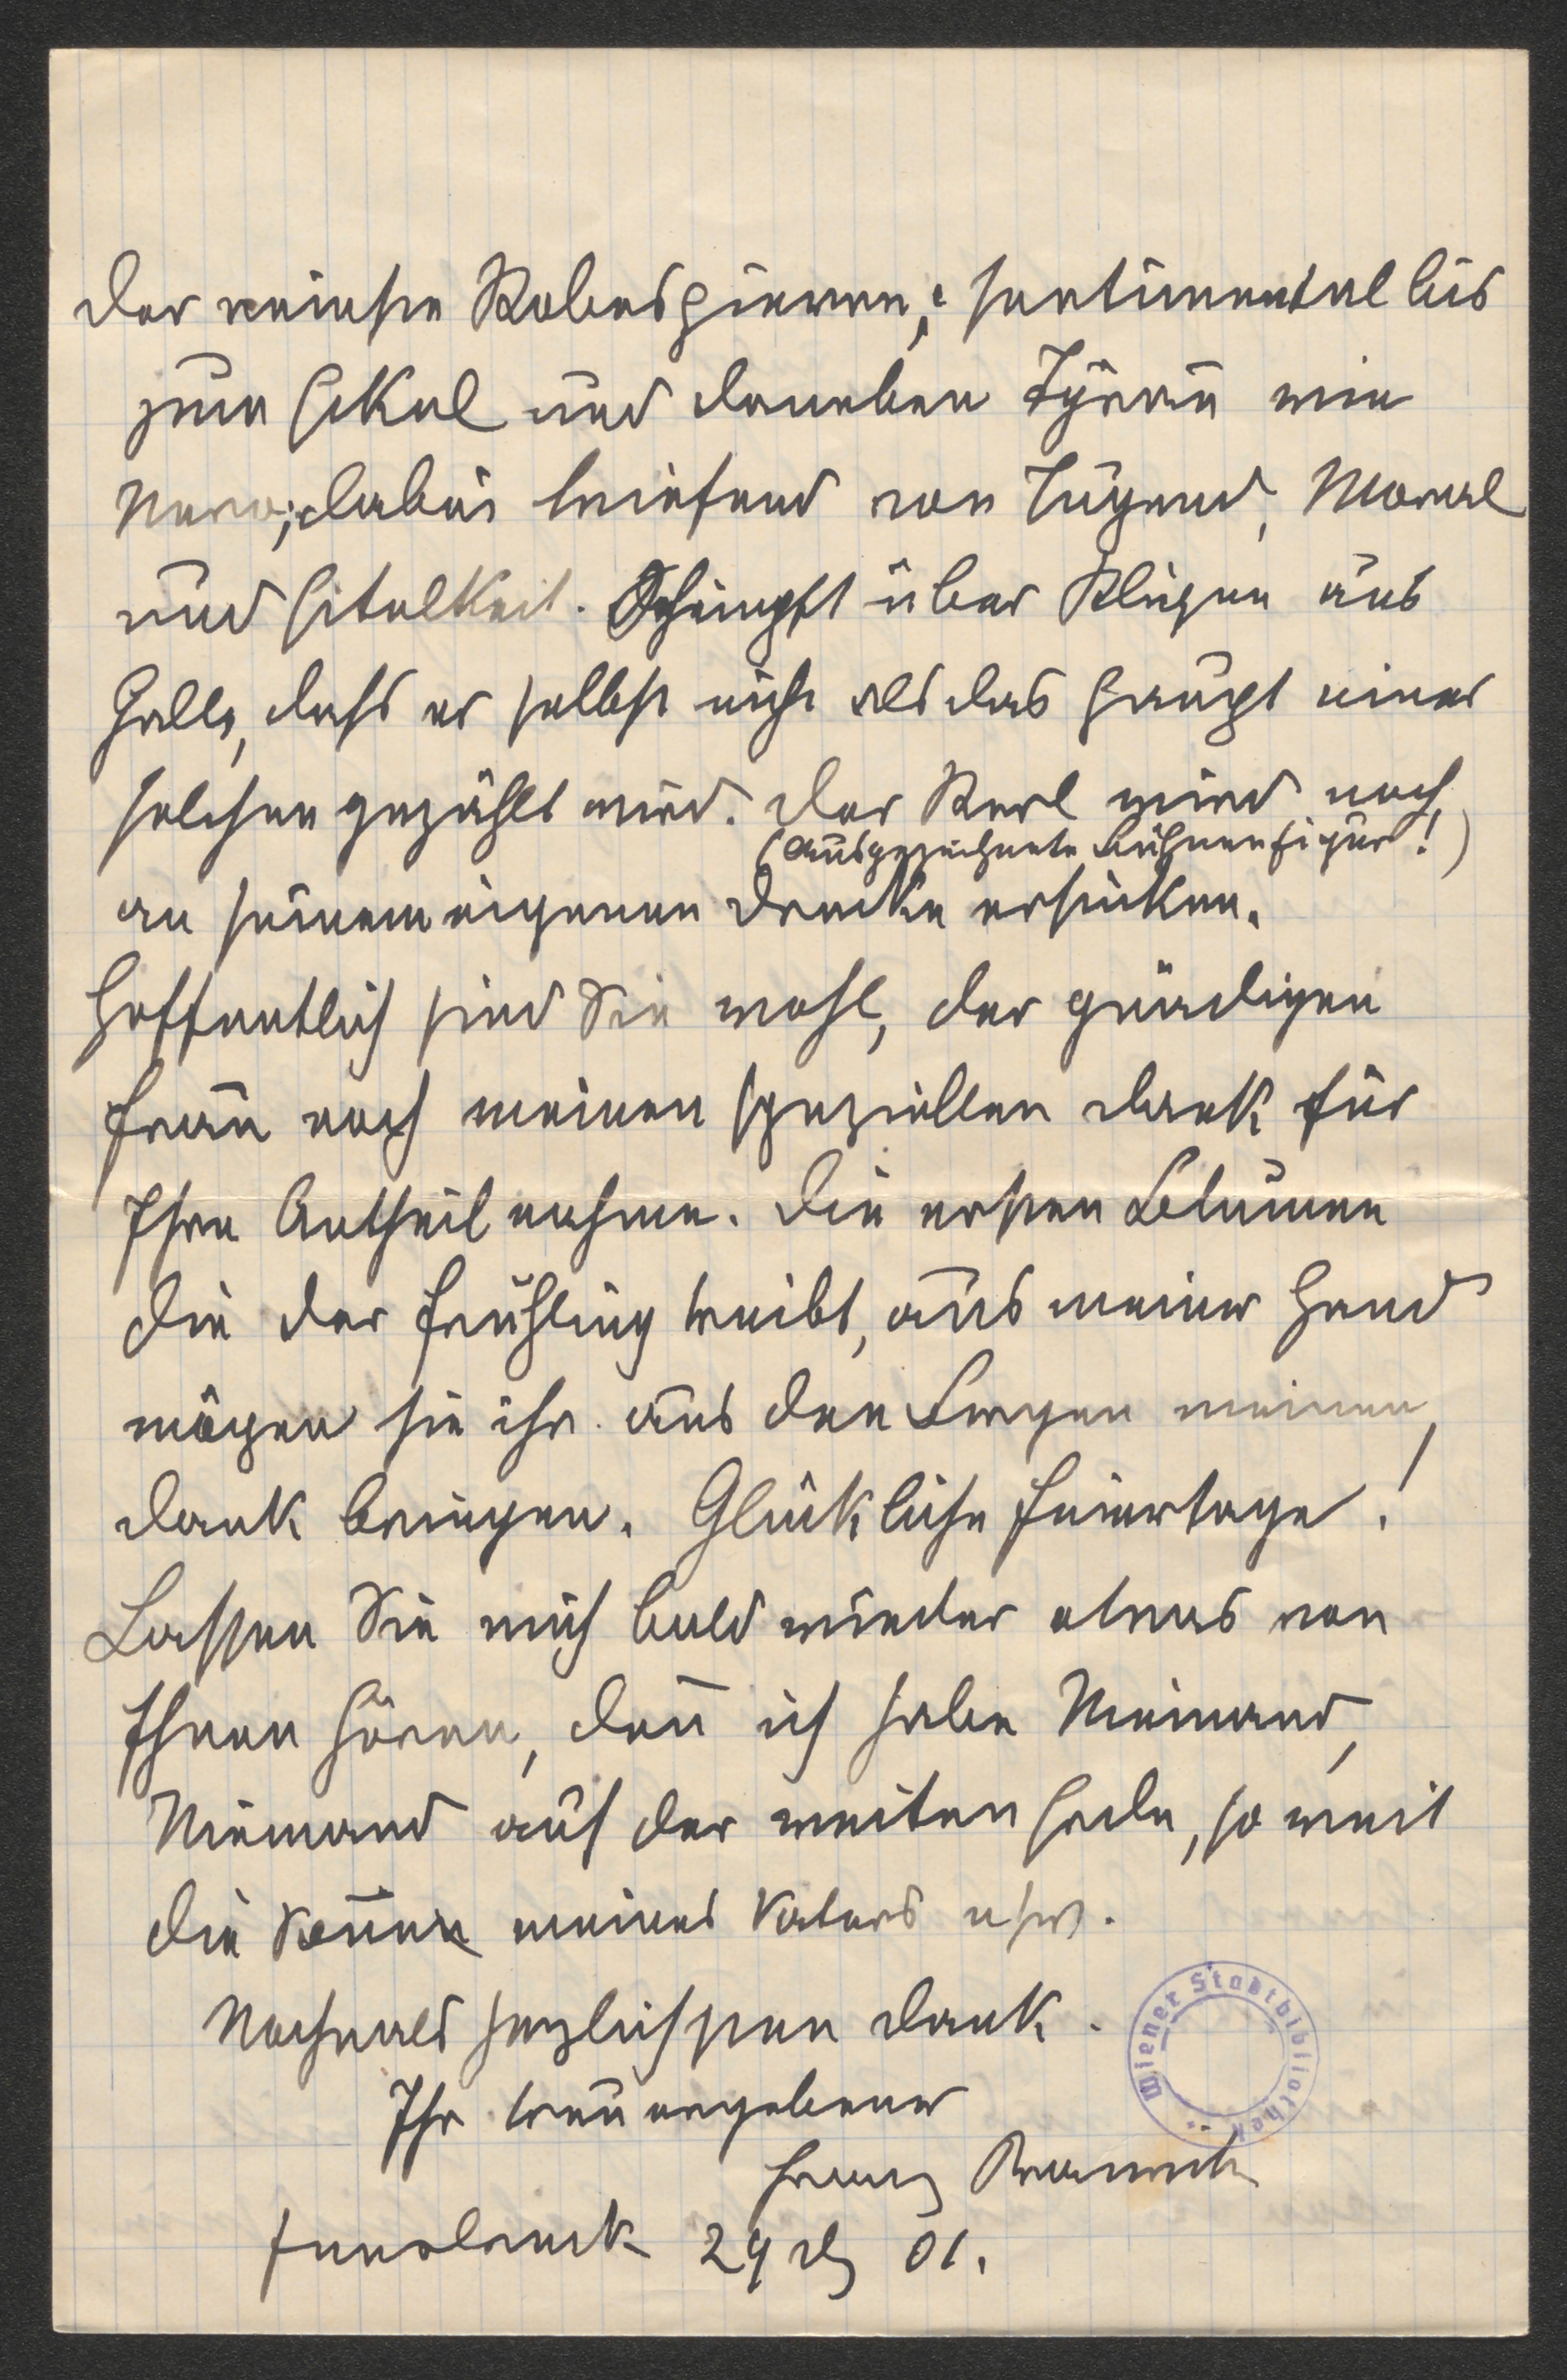 der reinste Robespierre; sentimental bis
zum Ekel und daneben Tyrann wie
Nero; dabei triefend von Tugend, Moral
und Eitelkeit. Schimpft über Kliquen aus
Galle, dass er selbst nicht als das Haupt einer
solchen gezählt wird. Der Kerl wird noch
(Ausgezeichnete Bühnenfigur!)
an seinem eigenen Drecke ersticken.
Hoffentlich sind Sie wohl, der gnädigen
Frau noch meinen speziellen Dank für
Ihre Antheilnahme. Die ersten Blumen
die der Frühling treibt, aus meiner Hand
mögen sie ihr aus den Bergen meinen
Dank bringen. Glückliche Feiertage!
Lassen Sie mich bald wieder etwas von
Ihnen hören, denn ich habe Niemand,
Niemand auf der weiten Erde, so weit
die Sonne meines Vaters usw.
Nochmals herzlichsten Dank.
Ihr treu ergebener
Franz Kranewitter
Innsbruck 24 Dz 01.
Wiener Stadtbibliothek